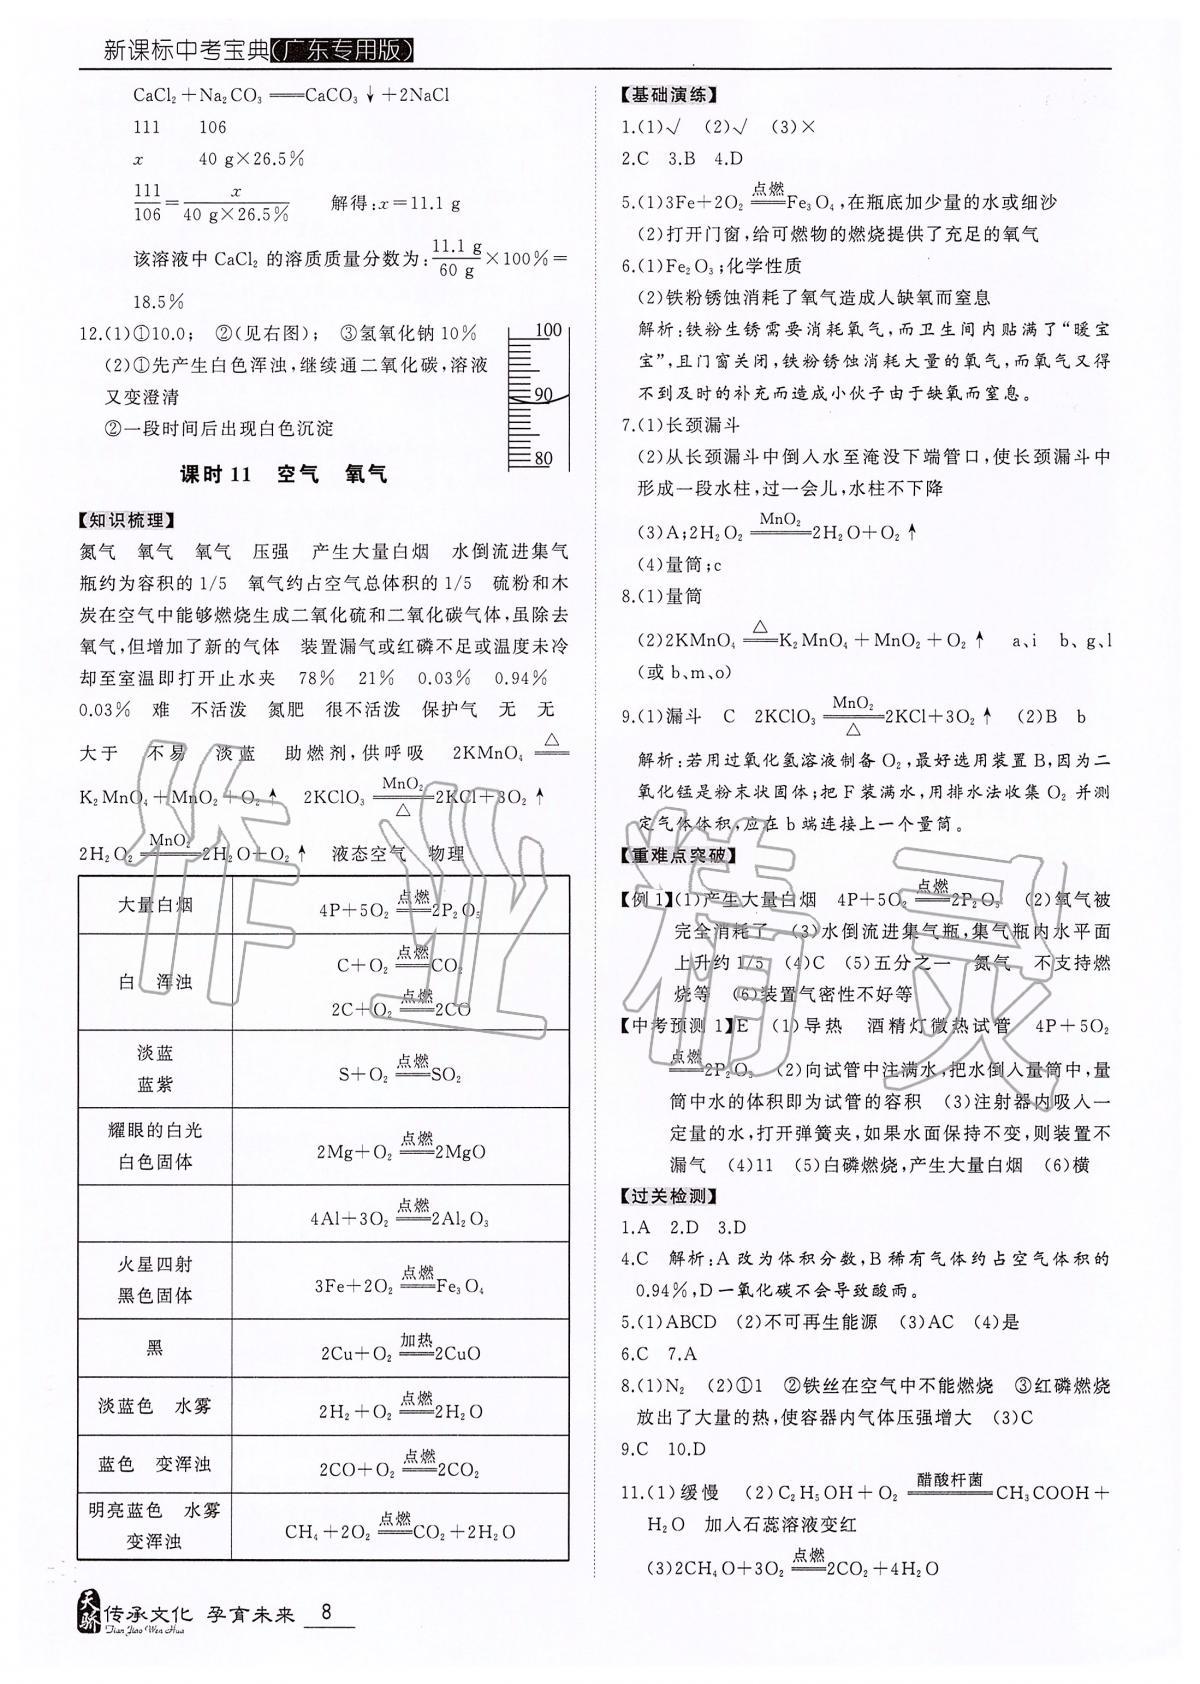 新课标中考宝典(广东专用版)
CaCl₂+Na₂CO₃══CaCO₃↓+2NaCl
111 106
x 40 g×26.5%
111/106=x/(40 g×26.5%) 解得:x=11.1 g
该溶液中 CaCl₂ 的溶质质量分数为:11.1 g/60 g×100%=
18.5%
12.(1)①10.0; ②(见右图); ③氢氧化钠10%
(2)①先产生白色浑浊,继续通二氧化碳,溶液
又变澄清
②一段时间后出现白色沉淀
100
90
80
课时 11 空气 氧气
【知识梳理】
氮气 氧气 氧气 压强 产生大量白烟 水倒流进集气
瓶约为容积的 1/5 氧气约占空气总体积的 1/5 硫粉和木
炭在空气中能够燃烧生成二氧化硫和二氧化碳气体,虽除去
氧气,但增加了新的气体 装置漏气或红磷不足或温度未冷
却至室温即打开止水夹 78% 21% 0.03% 0.94%
0.03% 难 不活泼 氮肥 很不活泼 保护气 无 无
大于 不易 淡蓝 助燃剂,供呼吸 2KMnO₄ △══
K₂MnO₄+MnO₂+O₂↑ 2KClO₃ MnO₂══△ 2KCl+3O₂↑
2H₂O₂ MnO₂══ 2H₂O+O₂↑ 液态空气 物理
大量白烟 4P+5O₂ 点燃══ 2P₂O₅
白 浑浊 C+O₂ 点燃══ CO₂
2C+O₂ 点燃══ 2CO
淡蓝
蓝紫 S+O₂ 点燃══ SO₂
耀眼的白光
白色固体 2Mg+O₂ 点燃══ 2MgO
4Al+3O₂ 点燃══ 2Al₂O₃
火星四射
黑色固体 3Fe+2O₂ 点燃══ Fe₃O₄
黑 2Cu+O₂ 加热══ 2CuO
淡蓝色 水雾 2H₂+O₂ 点燃══ 2H₂O
蓝色 变浑浊 2CO+O₂ 点燃══ 2CO₂
明亮蓝色 水雾
变浑浊 CH₄+2O₂ 点燃══ CO₂+2H₂O
【基础演练】
1.(1)√ (2)√ (3)×
2.C 3.B 4.D
5.(1)3Fe+2O₂ 点燃══ Fe₃O₄,在瓶底加少量的水或细沙
(2)打开门窗,给可燃物的燃烧提供了充足的氧气
6.(1)Fe₂O₃;化学性质
(2)铁粉锈蚀消耗了氧气造成人缺氧而窒息
解析:铁粉生锈需要消耗氧气,而卫生间内贴满了“暖宝
宝”,且门窗关闭,铁粉锈蚀消耗大量的氧气,而氧气又得
不到及时的补充而造成小伙子由于缺氧而窒息。
7.(1)长颈漏斗
(2)从长颈漏斗中倒入水至淹没下端管口,使长颈漏斗中
形成一段水柱,过一会儿,水柱不下降
(3)A;2H₂O₂ MnO₂══ 2H₂O+O₂↑
(4)量筒;c
8.(1)量筒
(2)2KMnO₄ △══ K₂MnO₄+MnO₂+O₂↑ a、i b、g、l
(或 b、m、o)
9.(1)漏斗 C 2KClO₃ MnO₂══△ 2KCl+3O₂↑ (2)B b
解析:若用过氧化氢溶液制备 O₂,最好选用装置 B,因为二
氧化锰是粉末状固体;把 F 装满水,用排水法收集 O₂ 并测
定气体体积,应在 b 端连接上一个量筒。
【重难点突破】
【例 1】(1)产生大量白烟 4P+5O₂ 点燃══ 2P₂O₅ (2)氧气被
完全消耗了 (3)水倒流进集气瓶,集气瓶内水平面
上升约 1/5 (4)C (5)五分之一 氮气 不支持燃
烧等 (6)装置气密性不好等
【中考预测 1】E (1)导热 酒精灯微热试管 4P+5O₂
点燃══ 2P₂O₅ (2)向试管中注满水,把水倒入量筒中,量
筒中水的体积即为试管的容积 (3)注射器内吸入一
定量的水,打开弹簧夹,如果水面保持不变,则装置不
漏气 (4)11 (5)白磷燃烧,产生大量白烟 (6)横
【过关检测】
1.A 2.D 3.D
4.C 解析:A 改为体积分数,B 稀有气体约占空气体积的
0.94%,D 一氧化碳不会导致酸雨。
5.(1)ABCD (2)不可再生能源 (3)AC (4)是
6.C 7.A
8.(1)N₂ (2)①1 ②铁丝在空气中不能燃烧 ③红磷燃烧
放出了大量的热,使容器内气体压强增大 (3)C
9.C 10.D
11.(1)缓慢 (2)C₂H₅OH+O₂ 醋酸杆菌══ CH₃COOH+
H₂O 加入石蕊溶液变红
(3)2CH₄O+3O₂ 点燃══ 2CO₂+4H₂O
天骄 传承文化 孕育未来 8
Tian Jiao Wen Hua
作业精灵